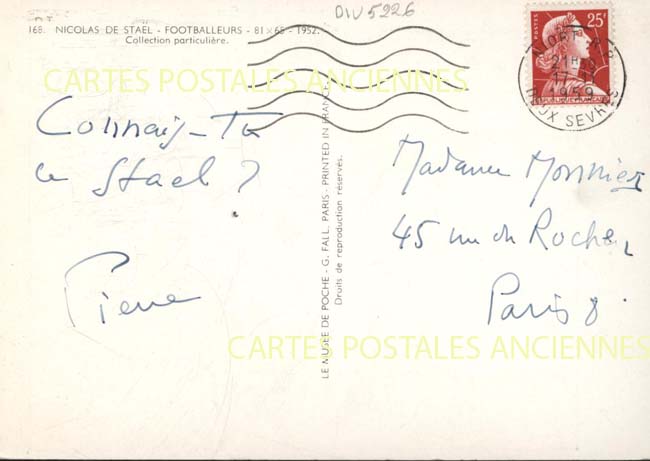 DIV5226
168. NICOLAS DE STAEL - FOOTBALLEURS - 81 x 65 - 1952.
Collection particulière.
POSTES 25F
REPUBLIQUE FRANÇAISE
NIORT R.P.
21H
17
1959
DEUX SEVRES
CARTES POSTALES ANCIENNES
Connais-Tu
ce Stael ?
Pierre
LE MUSEE DE POCHE - G. FALL. PARIS - PRINTED IN FRANCE
Droits de reproduction réservés.
Madame Monnier
45 rue du Rocher,
Paris 8
CARTES POSTALES ANCIENNES